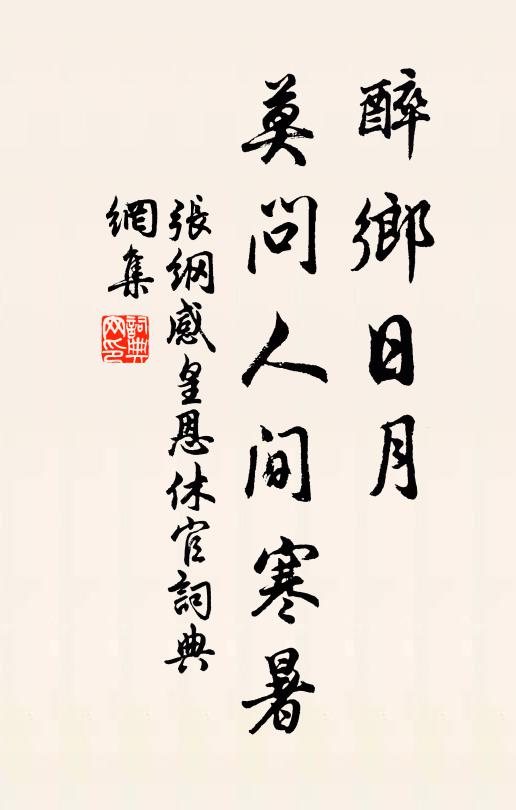 醉鄉日月
莫問人間寒暑
張綱感皇恩休官詞典
網集
詞典
網印